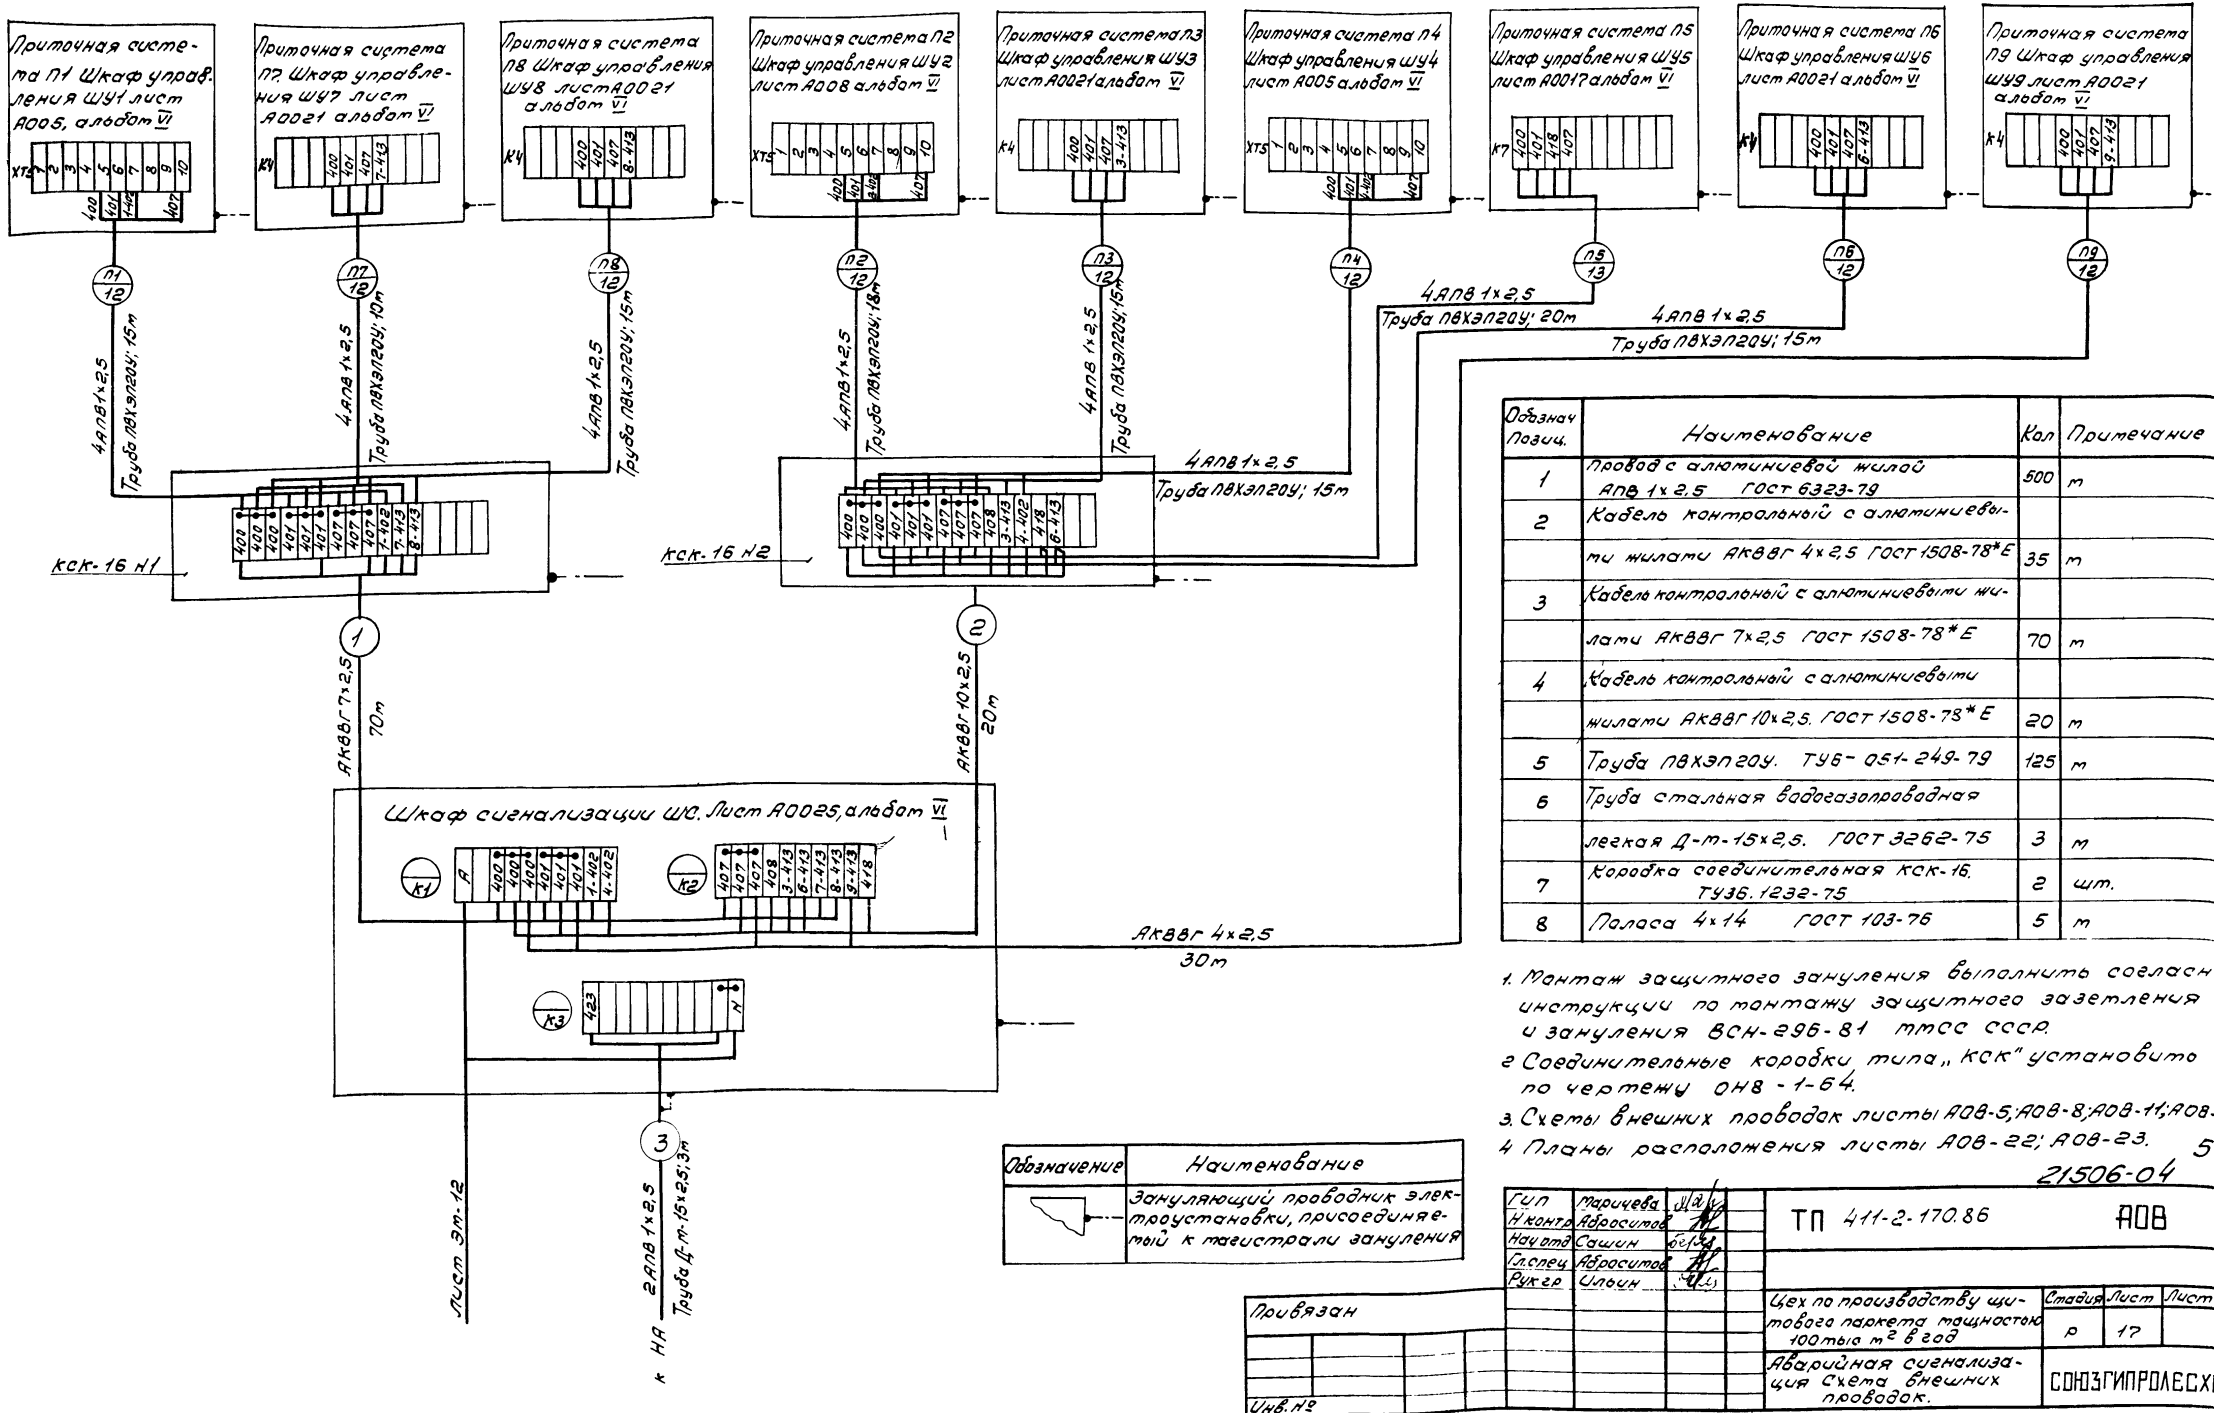 Приточная систе-
ма П1 Шкаф управ-
ления ШУ1 лист
А005, альбом VI
ХТ5 1 2 3 4 5 6 7 8 9 10
400 401 1-402 407
П1
12
Приточная система
П7 Шкаф управле-
ния ШУ7 лист
А0021 альбом VI
К4 400 401 407 7-413
П7
12
Приточная система
П8 Шкаф управления
ШУ8 лист А0021
альбом VI
К4 400 401 407 8-413
П8
12
Приточная система П2
Шкаф управления ШУ2
лист А008 альбом VI
ХТ5 1 2 3 4 5 6 7 8 9 10
400 401 407
П2
12
Приточная система П3
Шкаф управления ШУ3
лист А0021 альбом VI
К4 400 401 407 3-413
П3
12
Приточная система П4
Шкаф управления ШУ4
лист А005 альбом VI
ХТ5 1 2 3 4 5 6 7 8 9 10
400 401 4-402 407
П4
12
Приточная система П5
Шкаф управления ШУ5
лист А0017 альбом VI
К7 400 401 418 407
П5
13
Приточная система П6
Шкаф управления ШУ6
лист А0021 альбом VI
К4 400 401 407 6-413
П6
12
Приточная система
П9 Шкаф управления
ШУ9 лист А0021
альбом VI
К4 400 401 407 9-413
П9
12
4АПВ 1×2,5
Труба ПВХЭП20У; 15м
4АПВ 1×2,5
Труба ПВХЭП20У; 10м
4АПВ 1×2,5
Труба ПВХЭП20У; 15м
4АПВ 1×2,5
Труба ПВХЭП20У; 18м
4АПВ 1×2,5
Труба ПВХЭП20У; 15м
4АПВ 1×2,5
Труба ПВХЭП20У; 15м
4АПВ 1×2,5
Труба ПВХЭП20У; 20м
4АПВ 1×2,5
Труба ПВХЭП20У; 15м
КСК-16 N1
400 400 400 401 401 401 407 407 407 1-402 7-413 8-413
КСК-16 N2
400 400 400 401 401 401 407 407 407 408 3-413 4-402 418 6-413
1
АКВВГ 7×2,5
70м
2
АКВВГ 10×2,5
20м
Шкаф сигнализации ШС. Лист А0025, альбом VI
К1 А 400 400 400 401 401 401 1-402 4-402
К2 407 407 407 408 3-413 6-413 7-413 8-413 9-413 418
АКВВГ 4×2,5
30м
К3 423 N
3
Лист ЭМ-12
к НА 2АПВ 1×2,5
Труба Д-м-15×2,5; 3м
Обознач позиц. Наименование Кол Примечание
1 Провод с алюминиевой жилой
АПВ 1×2,5 ГОСТ 6323-79 500 м
2 Кабель контрольный с алюминиевы-
ми жилами АКВВГ 4×2,5 ГОСТ 1508-78*Е 35 м
3 Кабель контрольный с алюминиевыми жи-
лами АКВВГ 7×2,5 ГОСТ 1508-78*Е 70 м
4 Кабель контрольный с алюминиевыми
жилами АКВВГ 10×2,5. ГОСТ 1508-78*Е 20 м
5 Труба ПВХЭП20У. ТУ6-051-249-79 125 м
6 Труба стальная водогазопроводная
легкая Д-м-15×2,5. ГОСТ 3262-75 3 м
7 Коробка соединительная КСК-16.
ТУ36.1232-75 2 шт.
8 Полоса 4×14 ГОСТ 103-76 5 м
1. Монтаж защитного зануления выполнить согласн
инструкции по монтажу защитного заземления
и зануления ВСН-296-81 ММСС СССР.
2 Соединительные коробки типа „КСК" установить
по чертежу ОН8-1-64.
3. Схемы внешних проводок листы А0В-5; А0В-8; А0В-11; А0В-
4 Планы расположения листы А0В-22; А0В-23. 5
21506-04
Обозначение Наименование
Зануляющий проводник элек-
троустановки, присоединяе-
мый к магистрали зануления
ГИП Маричева
Н контр Абросимов
Нач отд Сашин
Гл.спец Абросимов
Рук гр Ильин
ТП 411-2-170.86 АОВ
Цех по производству щи-
тового паркета мощностью
100 тыс м² в год
Стадия Лист Лист
Р 17
Аварийная сигнализа-
ция Схема внешних
проводок.
СОЮЗГИПРОЛЕСХ
Привязан
Инв. №